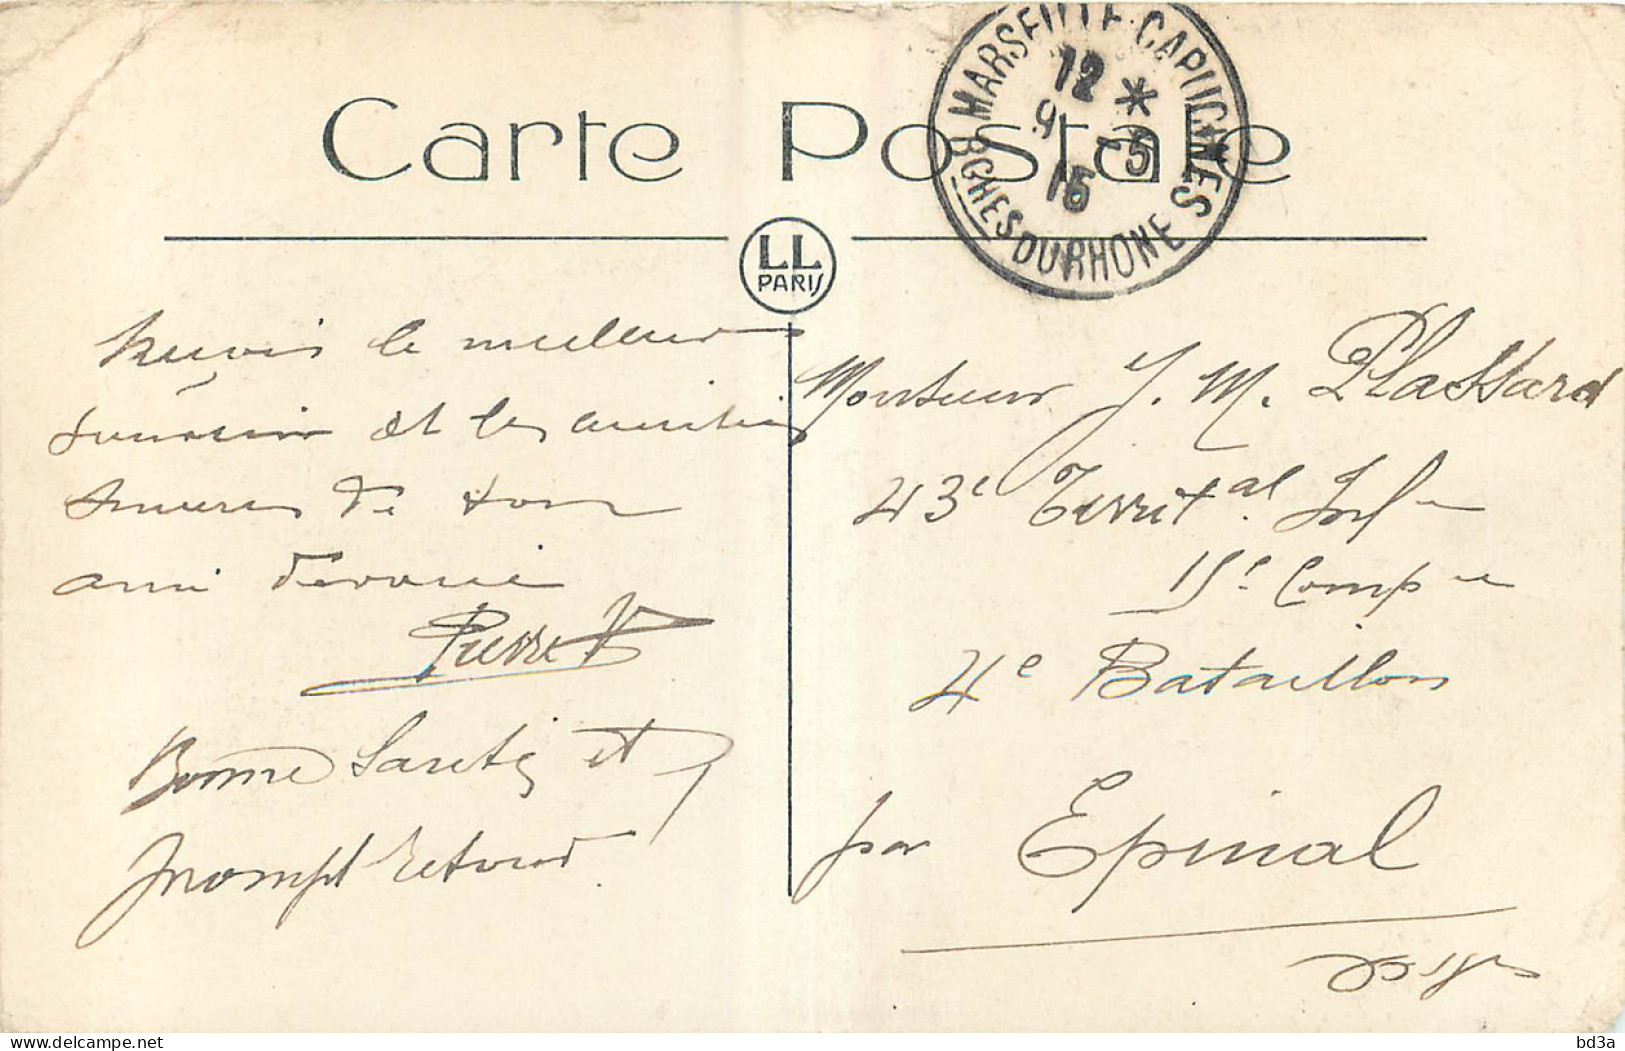 Carte Postale
MARSEILLE-CAPUCINES
12 *
9 -5
15
BCHES DU RHONE
LL
PARIS
Reçois le meilleur
souvenir et les amitiés
sincères de ton
ami dévoué
Pierre
Bonne Santé et
prompt retour
Monsieur J. M. Plassard
43e Territal. Infie
15e Compie
4e Bataillon
par Epinal
Vosges
bd3a